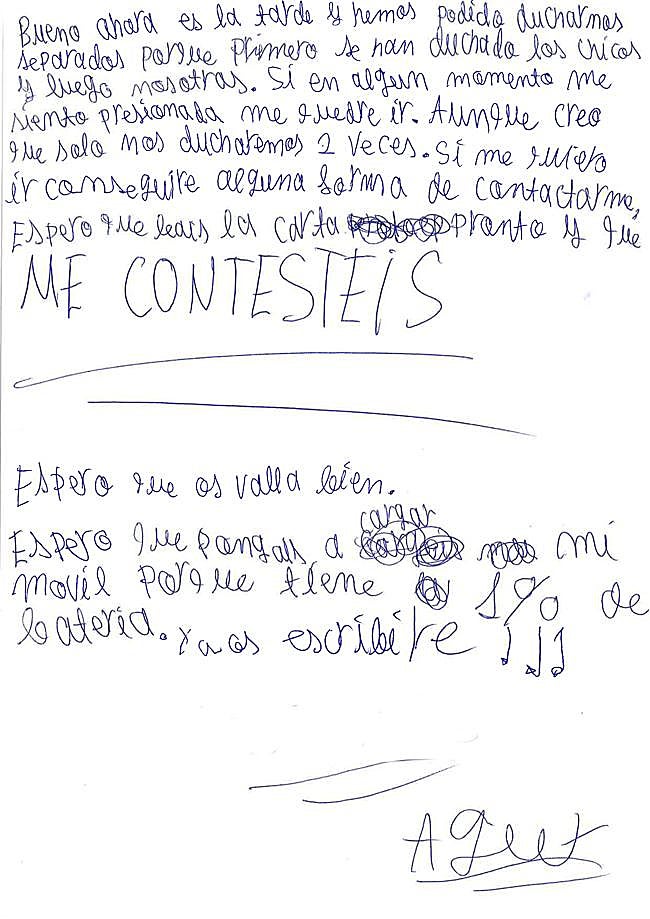 Bueno ahora es la tarde y hemos podido ducharnos
separados porque primero se han duchado los chicos
y luego nosotras. Si en algun momento me
siento presionada me quedre ir. Aunque creo
que solo nos ducharemos 2 veces. Si me quiero
ir conseguire alguna forma de contactarme,
Espero que leais la carta pronto y que
ME CONTESTEIS
Espero que os valla bien.
cargar
Espero que pongais a mi
movil porque tiene 1% de
bateria. Ya os escribire !!!